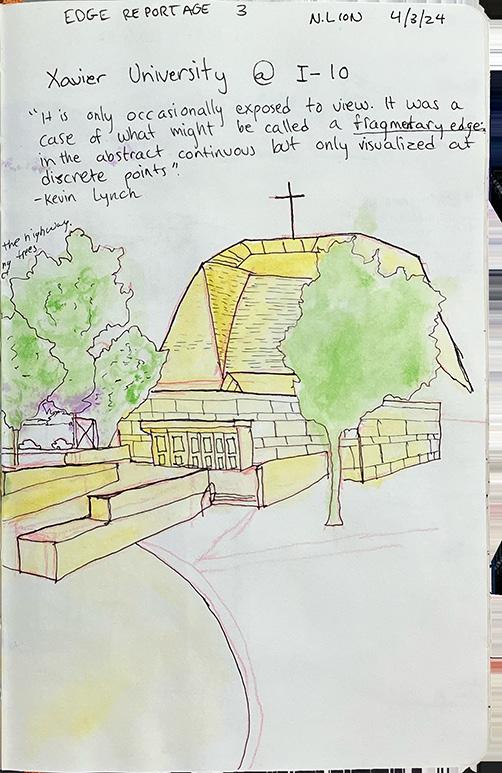 EDGE REPORTAGE 3 N.LION 4/3/24
Xavier University @ I-10
"It is only occasionally exposed to view. It was a
case of what might be called a fragmetary edge:
in the abstract continuous but only visualized at
discrete points".
-Kevin Lynch
the highway.
ny trees